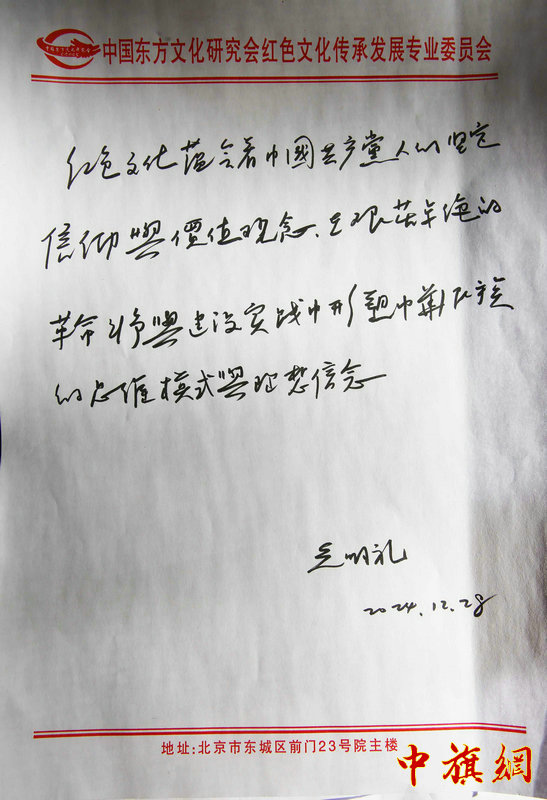 中国东方文化研究会红色文化传承发展专业委员会
红色文化蕴含着中國共产黨人的坚定
信仰與價值观念、在艰苦卓绝的
革命斗争與建设实践中形塑中華民族
的思维模式與理想信念
明礼
2024.12.28
地址:北京市东城区前门23号院主楼
中旗網